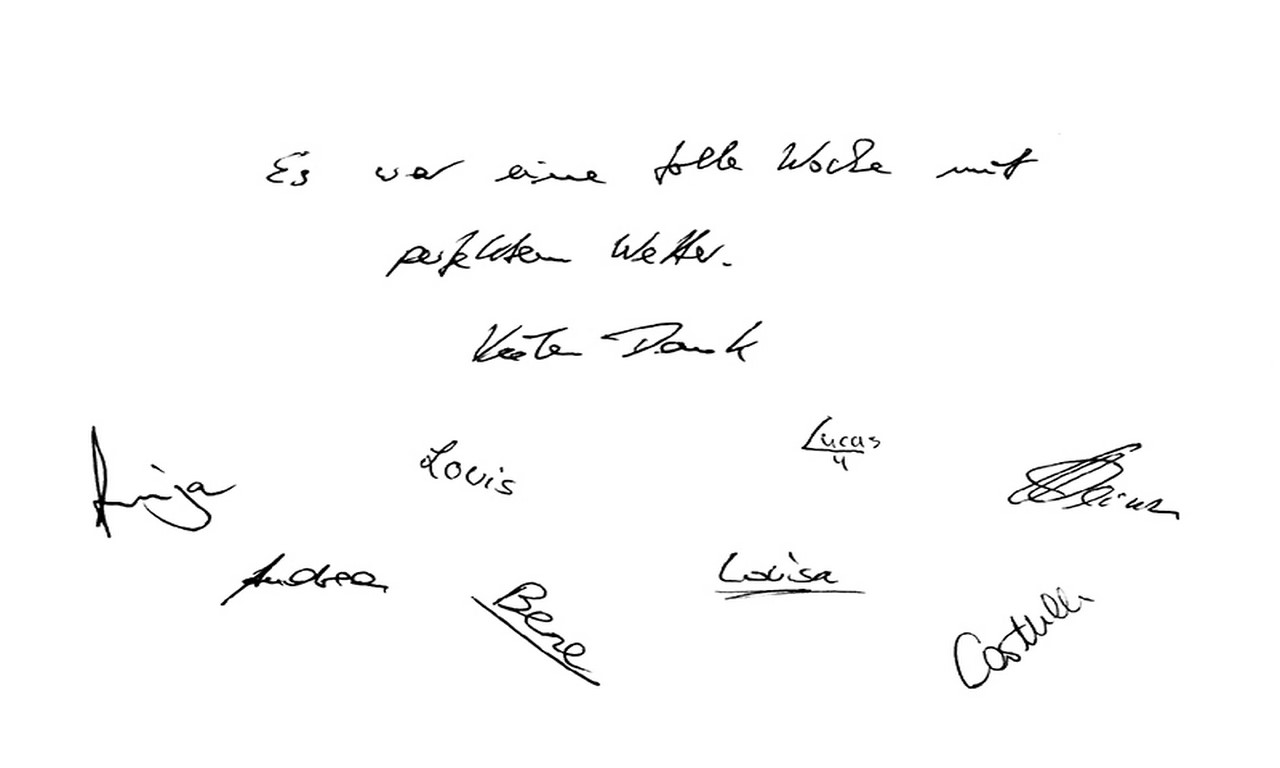 Es war eine tolle Woche mit
perfektem Wetter.
Vielen Dank
Anja
Louis
Lucas
4
Andrea
Bene
Louisa